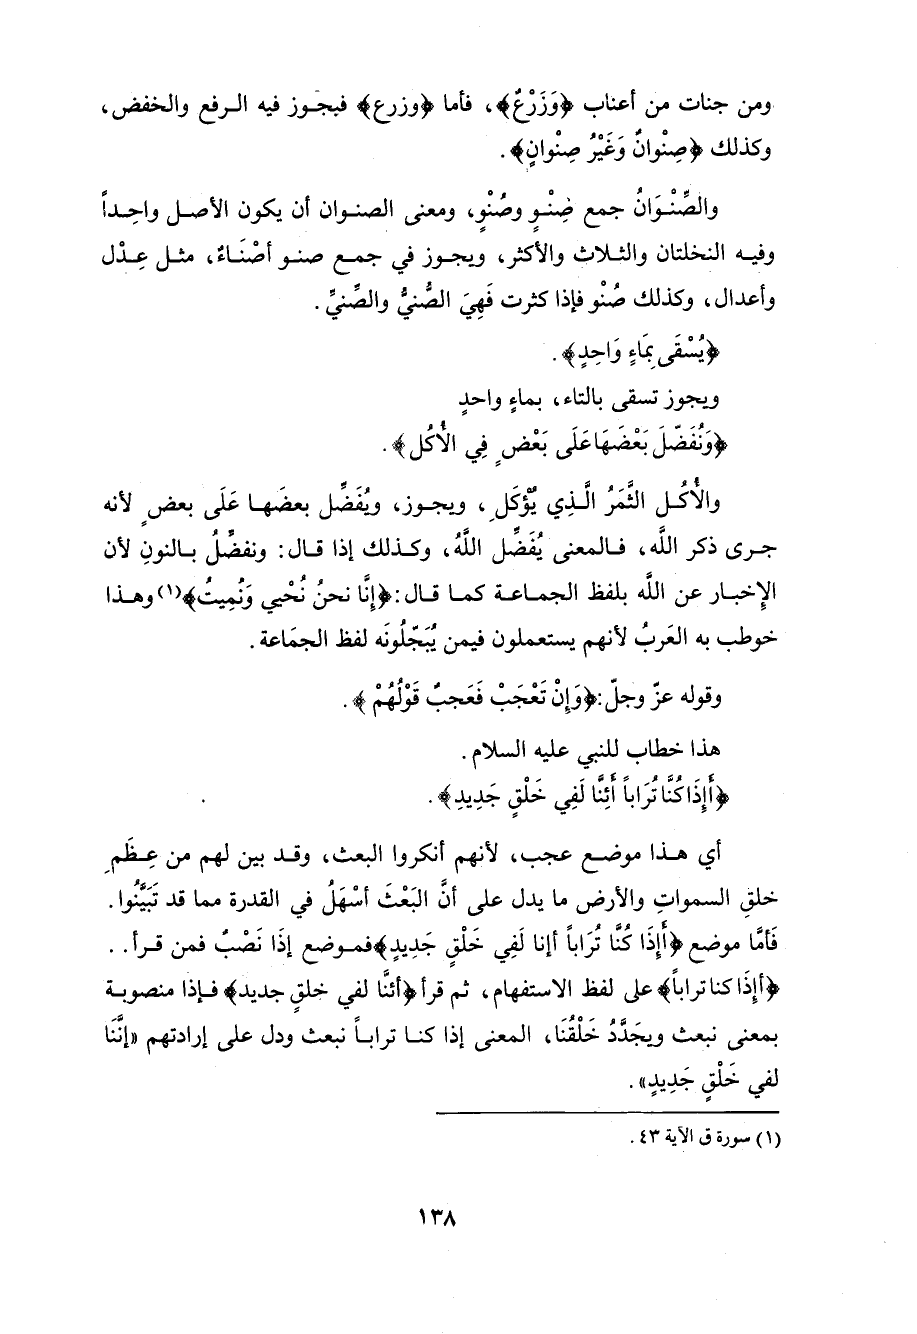 ومن جنات من أعناب ﴿وَزَرْعٌ﴾، فأما ﴿وزرع﴾ فيجوز فيه الرفع والخفض،
وكذلك ﴿صِنْوانٌ وَغَيْرُ صِنْوانٍ﴾.
والصِّنْوَانُ جمع صِنْوٍ وصُنْوٍ، ومعنى الصنوان أن يكون الأصل واحِداً
وفيه النخلتان والثلاث والأكثر، ويجوز في جمع صنو أصْنَاءٌ، مثل عِدْل
وأعدال، وكذلك صُنْو فإذا كثرت فَهِيَ الصُّنيُّ والصِّنيِّ.
﴿يُسْقَى بِمَاءٍ وَاحِدٍ﴾.
ويجوز تسقى بالتاء، بماءٍ واحدٍ
﴿وَنُفَضِّلَ بَعْضَهَا عَلَى بَعْضٍ فِي الْأُكُل﴾.
والأُكُل الثَّمَرُ الَّذِي يُؤْكَلِ، ويجوز، ويُفَضِّل بعضَها عَلَى بعضٍ لأنه
جرى ذكر اللَّه، فالمعنى يُفَضِّل اللَّهُ، وكذلك إذا قال: ونفضِّلُ بالنونِ لأن
الإِخبار عن اللَّه بلفظ الجماعة كما قال: ﴿إِنَّا نحنُ نُحْيي وَنُمِيتُ﴾(١) وهذا
خوطب به العَربُ لأنهم يستعملون فيمن يُبَجِّلُونَه لفظ الجمَاعة.
وقوله عزّ وجلّ: ﴿وَإِنْ تَعْجَبْ فَعَجبٌ قَوْلُهُمْ﴾.
هذا خطاب للنبي عليه السلام.
﴿أَإِذَا كُنَّا تُرَاباً أَئِنَّا لَفِي خَلْقٍ جَدِيدِ﴾.
أي هذا موضع عجب، لأنهم أنكروا البعث، وقد بين لهم من عِظَمِ
خلقِ السمواتِ والأرض ما يدل على أنَّ البَعْثَ أسْهَلُ في القدرة مما قد تَبَيَّنُوا.
فَأمَّا موضع ﴿أَإِذَا كُنَّا تُرَاباً أإنا لَفِي خَلْقٍ جَدِيدٍ﴾ فموضع إذَا نَصْبٌ فمن قرأ. .
﴿أإذَا كنا تراباً﴾ على لفظ الاستفهام، ثم قرأ ﴿أئنَّا لفي خلقٍ جديد﴾ فإذا منصوبة
بمعنى نبعث ويجَدَّدُ خَلْقُنَا، المعنى إذا كنا تراباً نبعث ودل على إرادتهم «إنَّنَا
لفي خَلْقٍ جَدِيدٍ».
(١) سورة ق الآية ٤٣.
١٣٨